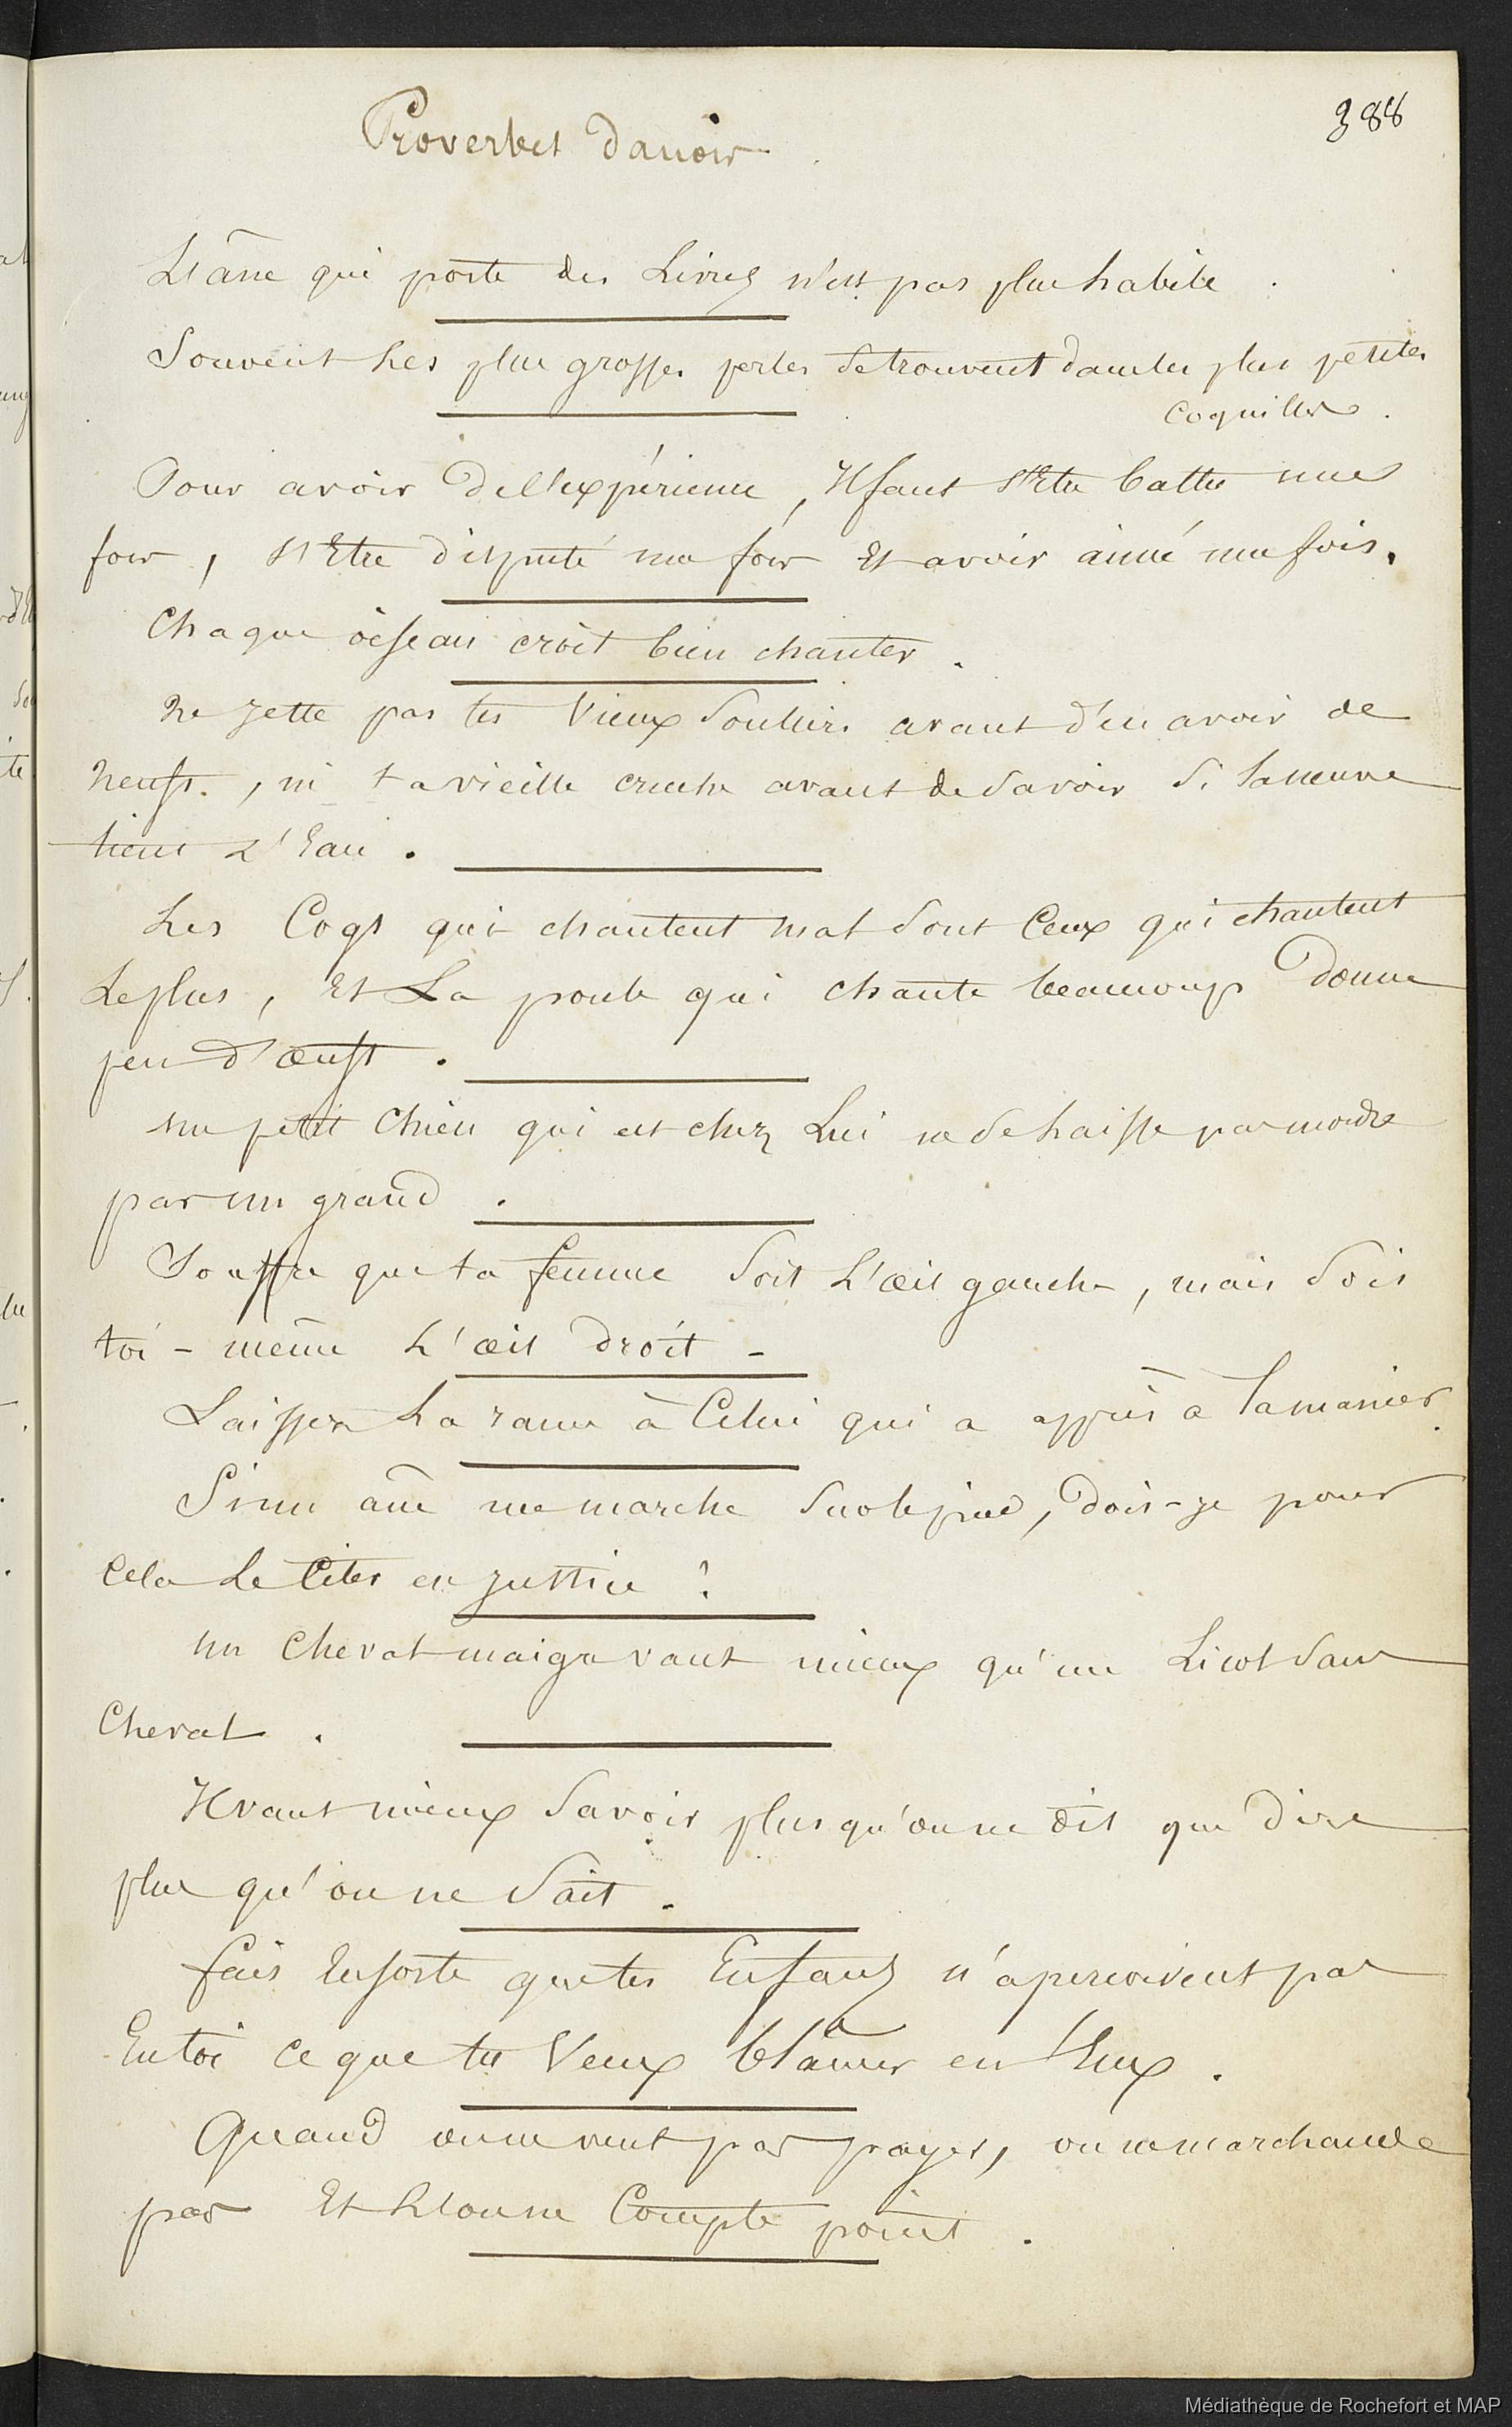 388
Proverbes danois
L'âne qui porte des Livres n'est pas plus habile.
Souvent Les plus grosses perles se trouvent dans les plus petites
coquilles.
Pour avoir De l'expérience, Il faut s'Etre battu une
fois, s'Etre disputé une fois Et avoir aimé une fois.
Chaque oiseau croit bien chanter.
Ne jette pas tes Vieux Souliers avant d'en avoir de
neufs, ni ta vieille cruche avant de Savoir Si la neuve
tient L'Eau.
Les Coqs qui chantent mal Sont Ceux qui chantent
Le plus, Et La poule qui chante beaucoup Donne
peu d'œufs.
un petit Chien qui est chez Lui ne Se laisse pas mordre
par un grand.
Souffre que ta femme Soit L'œil gauche, mais Sois
toi-même L'œil droit -
Laissez La rame à Celui qui a appris à la manier.
Si un âne me marche Sur le pied, Dois-je pour
cela Le Citer en justice ?
un Cheval maigre vaut mieux qu'un Licol Sans
Cheval.
Il vaut mieux Savoir plus qu'on ne dit que Dire
plus qu'on ne Sait.
fais Ensorte que tes Enfans n'aperçoivent pas
En toi ce que tu Veux blâmer en Eux.
Quand on ne veut pas payer, on ne marchande
pas Et L'on ne Compte point.
Médiathèque de Rochefort et MAP